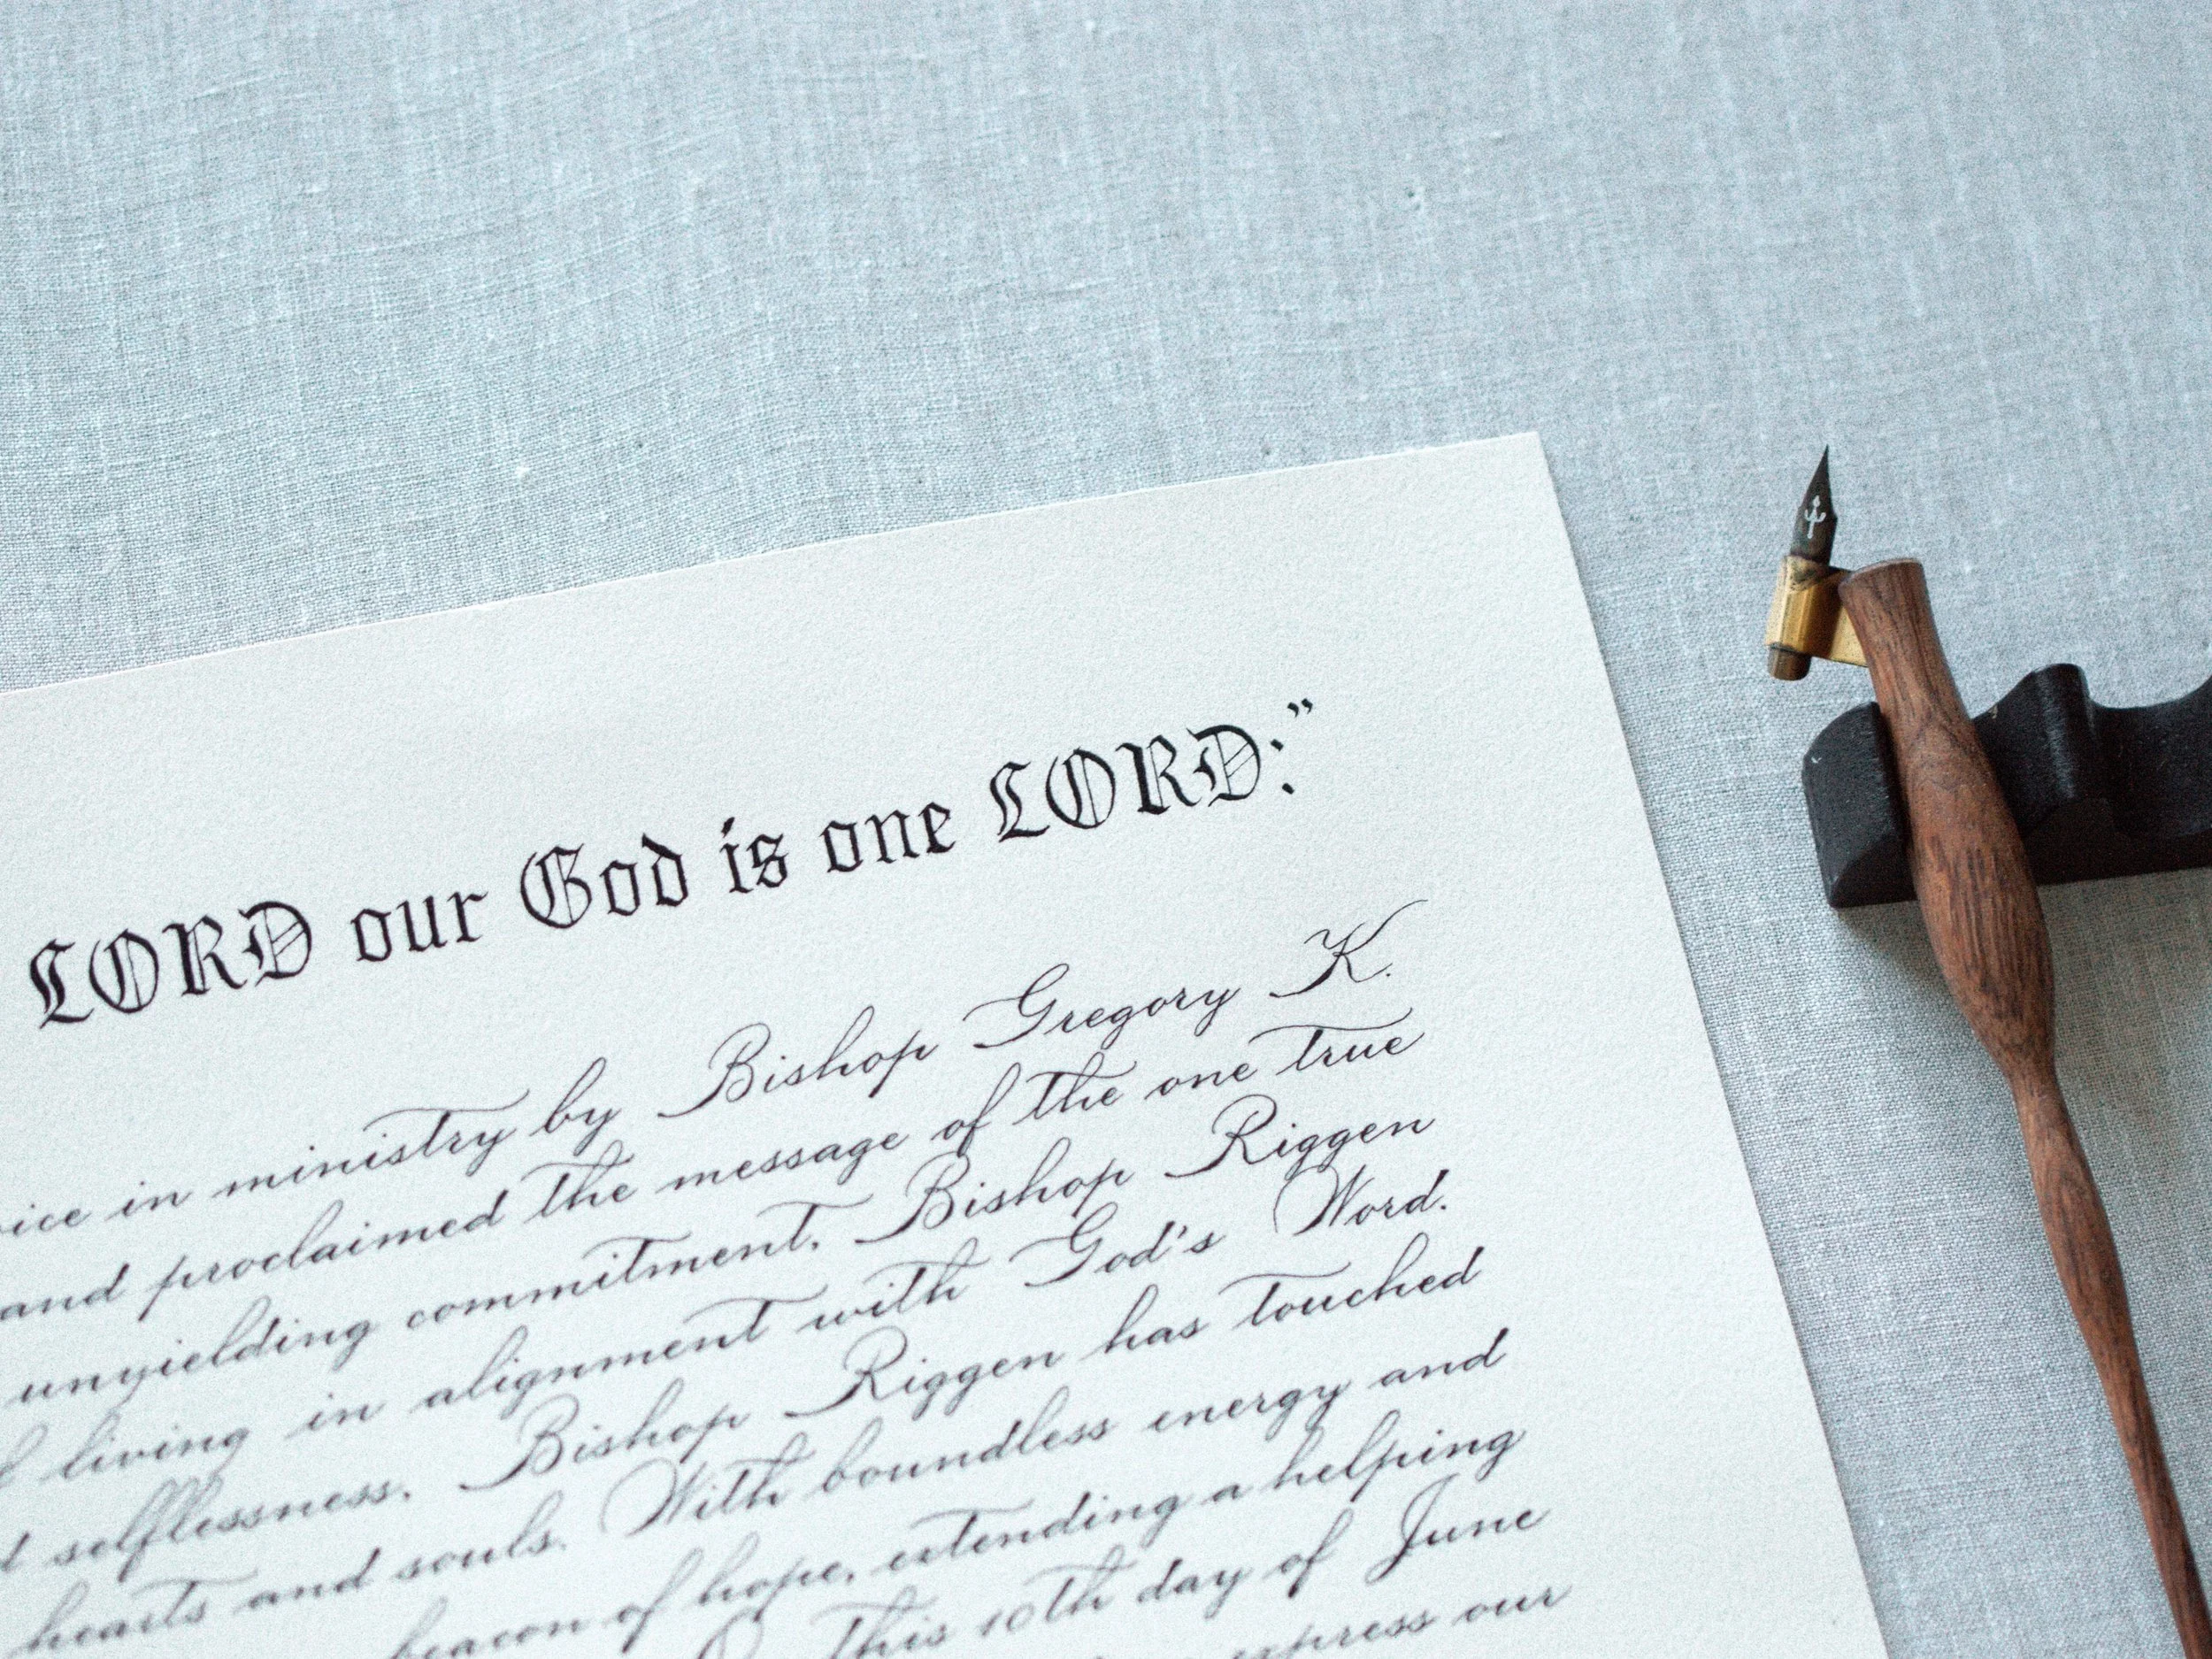 LORD our God is one LORD:"
in ministry by Bishop Gregory K.
and proclaimed the message of the one true
unyielding commitment, Bishop Riggen
living in alignment with God's Word.
selflessness, Bishop Riggen has touched
hearts and souls. With boundless energy and
beacon of hope, extending a helping
This 10th day of June
express our